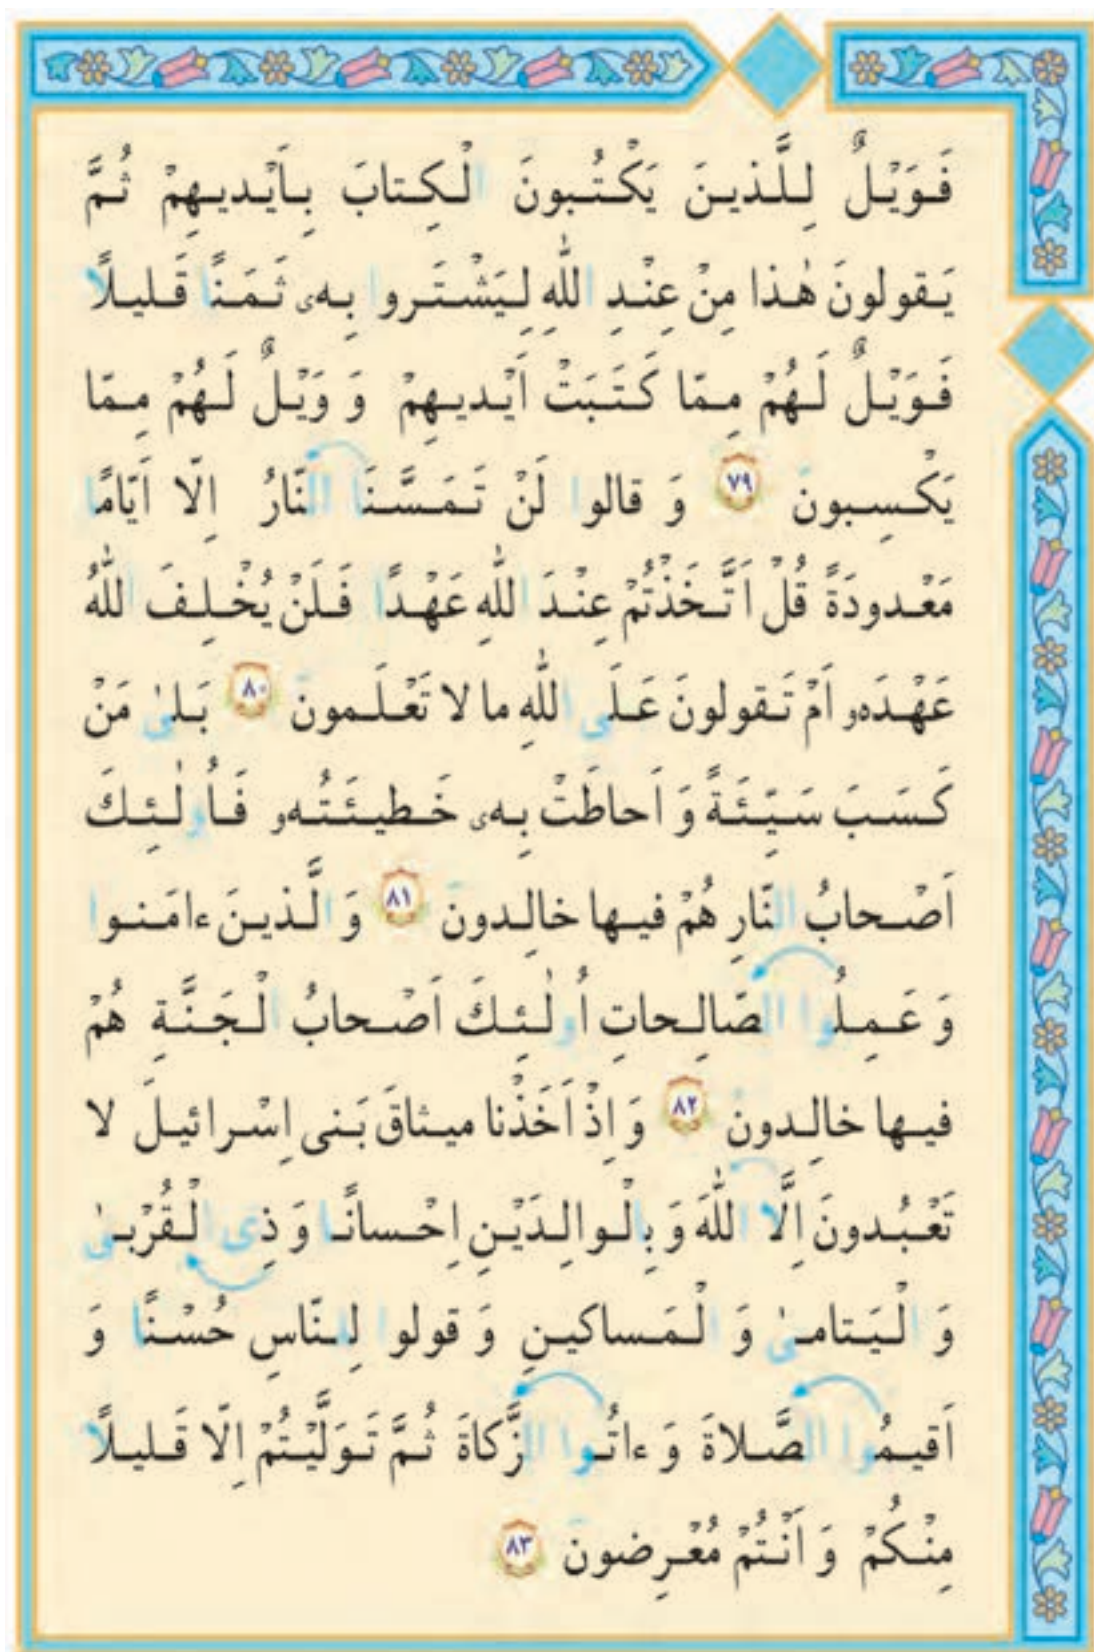 فَوَيْلٌ لِلَّذينَ يَكْتُبونَ الْكِتابَ بِاَيْديهِمْ ثُمَّ
يَقولونَ هٰذا مِنْ عِنْدِ اللّٰهِ لِيَشْتَروا بِهٖ ثَمَنًا قَليلًا
فَوَيْلٌ لَهُمْ مِمّا كَتَبَتْ اَيْديهِمْ وَ وَيْلٌ لَهُمْ مِمّا
يَكْسِبونَ ﴿٧٩﴾ وَ قالوا لَنْ تَمَسَّنَا النّارُ اِلّا اَيّامًا
مَعْدودَةً قُلْ اَتَّخَذْتُمْ عِنْدَ اللّٰهِ عَهْدًا فَلَنْ يُخْلِفَ اللّٰهُ
عَهْدَهۥ اَمْ تَقولونَ عَلَى اللّٰهِ ما لا تَعْلَمونَ ﴿٨٠﴾ بَلىٰ مَنْ
كَسَبَ سَيِّئَةً وَ اَحاطَتْ بِهٖ خَطيئَتُهۥ فَاُولٰئِكَ
اَصْحابُ النّارِ هُمْ فيها خالِدونَ ﴿٨١﴾ وَ الَّذينَ ءامَنوا
وَ عَمِلُوا الصّالِحاتِ اُولٰئِكَ اَصْحابُ الْجَنَّةِ هُمْ
فيها خالِدونَ ﴿٨٢﴾ وَ اِذْ اَخَذْنا ميثاقَ بَنى اِسْرائيلَ لا
تَعْبُدونَ اِلَّا اللّٰهَ وَ بِالْوالِدَيْنِ اِحْسانًا وَ ذِى الْقُرْبىٰ
وَ الْيَتامىٰ وَ الْمَساكينِ وَ قولوا لِلنّاسِ حُسْنًا وَ
اَقيمُوا الصَّلاةَ وَ ءاتُوا الزَّكاةَ ثُمَّ تَوَلَّيْتُمْ اِلّا قَليلًا
مِنْكُمْ وَ اَنْتُمْ مُعْرِضونَ ﴿٨٣﴾